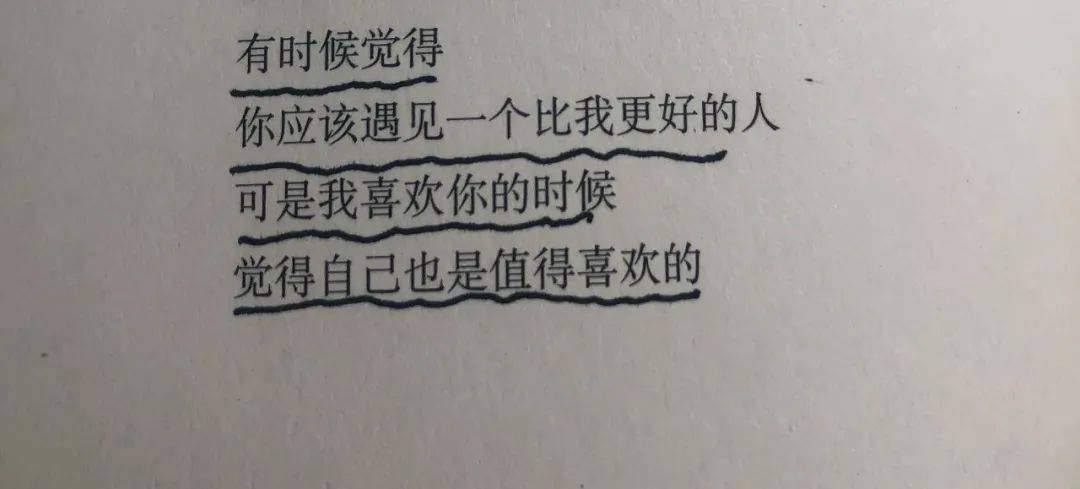 有时候觉得
你应该遇见一个比我更好的人
可是我喜欢你的时候
觉得自己也是值得喜欢的